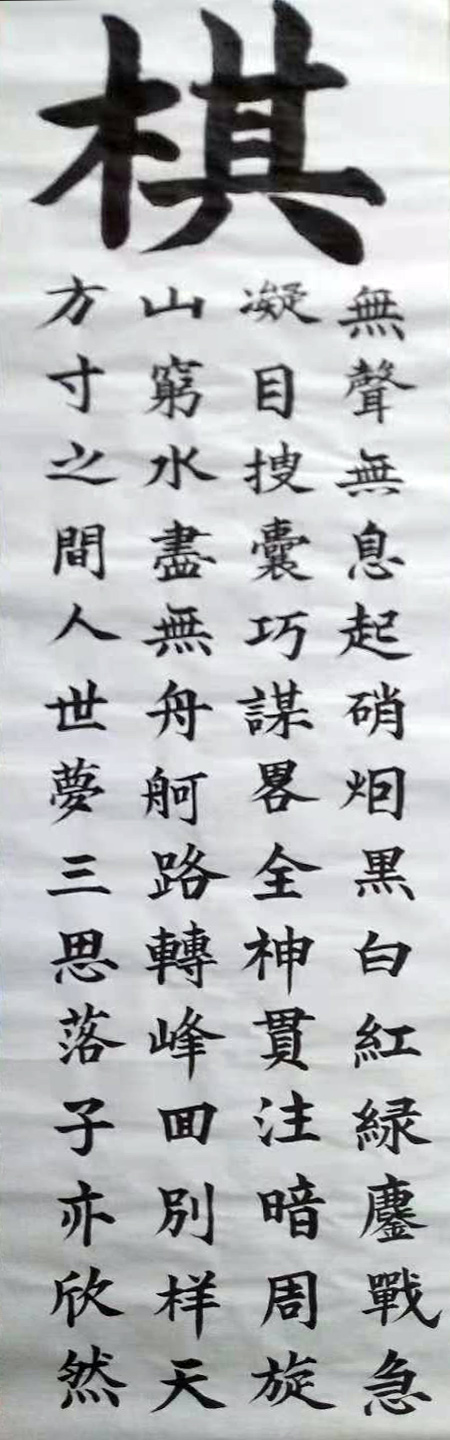 棋
無聲無息起硝烟黑白紅緑鏖戰急
凝目搜囊巧謀畧全神貫注暗周旋
山窮水盡無舟舸路轉峰回別样天
方寸之間人世夢三思落子亦欣然